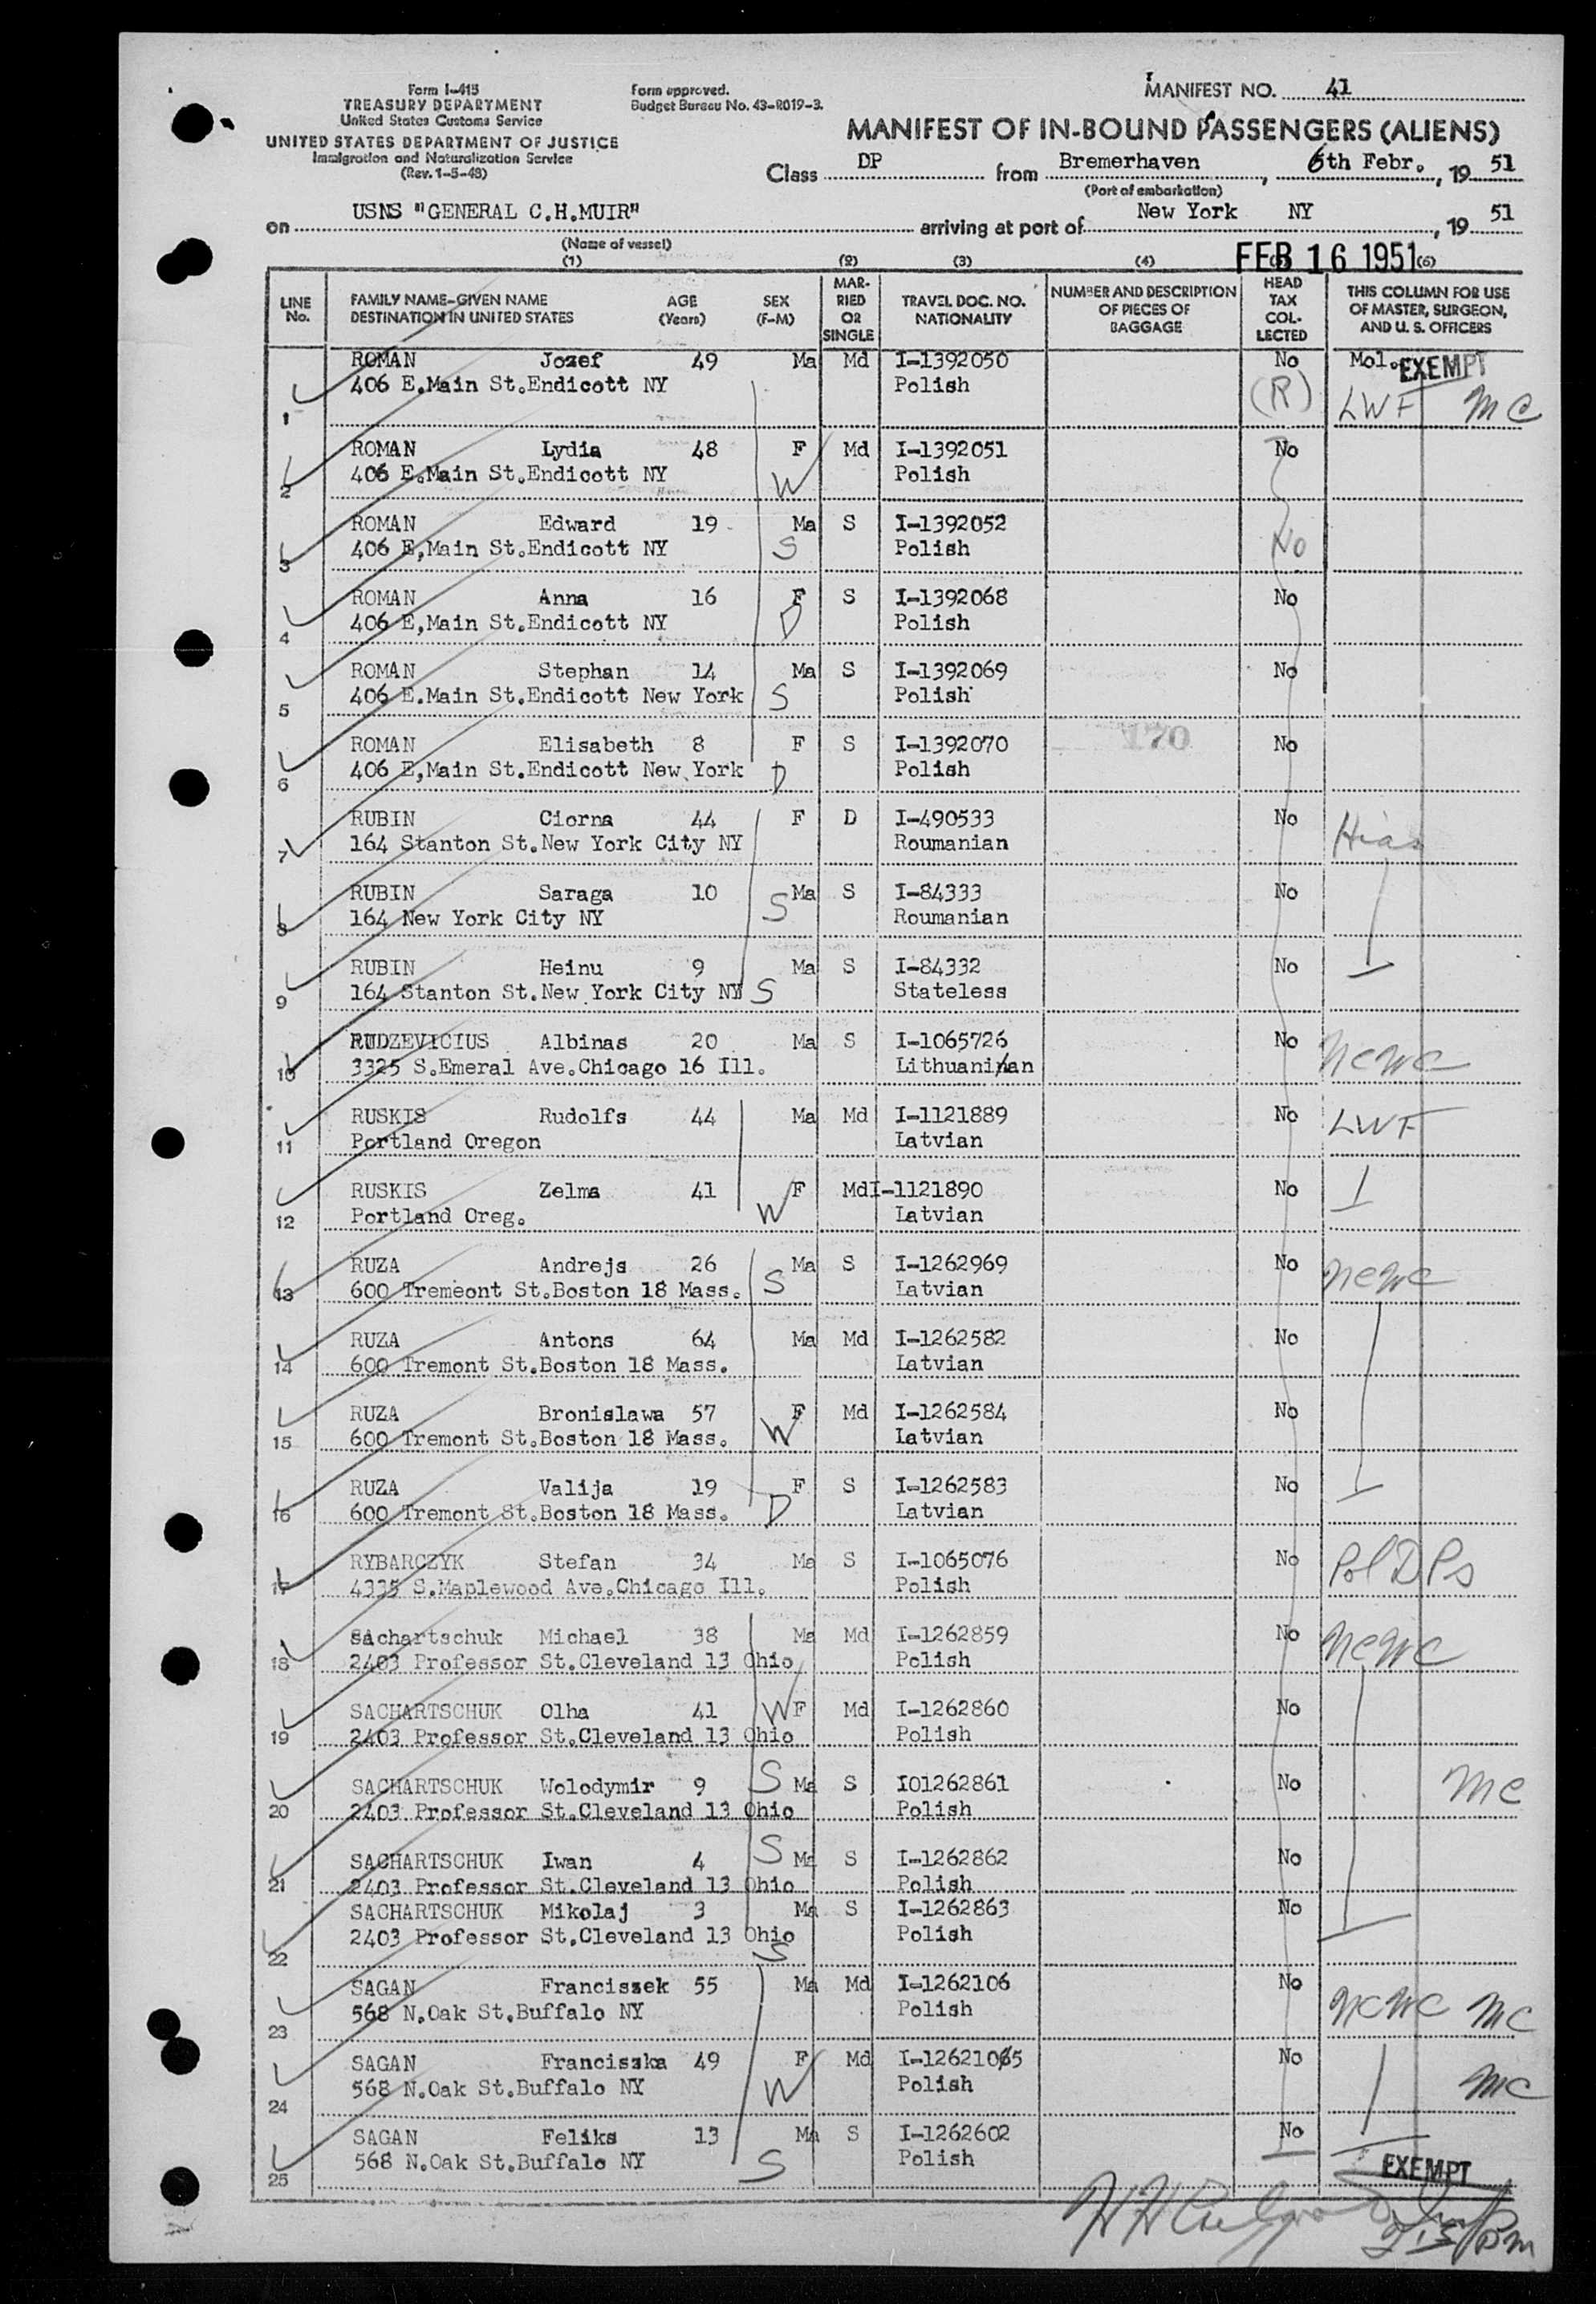 Form I-415
TREASURY DEPARTMENT
United States Customs Service
UNITED STATES DEPARTMENT OF JUSTICE
Immigration and Naturalization Service
(Rev. 1-5-48)
Form approved.
Budget Bureau No. 43-R019-3.
MANIFEST NO. 41
MANIFEST OF IN-BOUND PASSENGERS (ALIENS)
Class DP from Bremerhaven, 6th Febr., 19 51
(Port of embarkation)
on USNS "GENERAL C.H.MUIR" arriving at port of New York NY, 19 51
(Name of vessel)
FEB 16 1951
(1) (2) (3) (4) (6)
LINE No. FAMILY NAME–GIVEN NAME DESTINATION IN UNITED STATES AGE (Years) SEX (F-M) MARRIED OR SINGLE TRAVEL DOC. NO. NATIONALITY NUMBER AND DESCRIPTION OF PIECES OF BAGGAGE HEAD TAX COLLECTED THIS COLUMN FOR USE OF MASTER, SURGEON, AND U. S. OFFICERS
ROMAN Jozef 49 Ma Md I-1392050 No Mol. EXEMPT
406 E.Main St.Endicott NY Polish (R) LWF MC
1
ROMAN Lydia 48 F Md I-1392051 No
406 E.Main St.Endicott NY W Polish
2
ROMAN Edward 19 Ma S I-1392052
406 E,Main St.Endicott NY S Polish No
3
ROMAN Anna 16 F S I-1392068 No
406 E,Main St.Endicott NY D Polish
4
ROMAN Stephan 14 Ma S I-1392069 No
406 E.Main St.Endicott New York S Polish
5
ROMAN Elisabeth 8 F S I-1392070 170 No
406 E,Main St.Endicott New York D Polish
6
RUBIN Ciorna 44 F D I-490533 No Hias
164 Stanton St.New York City NY Roumanian
7
RUBIN Saraga 10 S Ma S I-84333 No
164 New York City NY Roumanian
8
RUBIN Heinu 9 Ma S I-84332 No
164 Stanton St.New York City NY S Stateless
9
RUDZEVICIUS Albinas 20 Ma S I-1065726 No NCWC
3325 S.Emeral Ave.Chicago 16 Ill. Lithuanian
10
RUSKIS Rudolfs 44 Ma Md I-1121889 No LWF
Portland Oregon Latvian
11
RUSKIS Zelma 41 F Md I-1121890 No
Portland Oreg. W Latvian
12
RUZA Andrejs 26 Ma S I-1262969 No NCWC
600 Tremeont St.Boston 18 Mass. S Latvian
13
RUZA Antons 64 Ma Md I-1262582 No
600 Tremont St.Boston 18 Mass. Latvian
14
RUZA Bronislawa 57 F Md I-1262584 No
600 Tremont St.Boston 18 Mass. W Latvian
15
RUZA Valija 19 F S I-1262583 No
600 Tremont St.Boston 18 Mass. D Latvian
16
RYBARCZYK Stefan 34 Ma S I-1065076 No Pol DPs
4335 S.Maplewood Ave.Chicago Ill. Polish
17
Sachartschuk Michael 38 Ma Md I-1262859 No NCWC
2403 Professor St.Cleveland 13 Ohio Polish
18
SACHARTSCHUK Olha 41 W F Md I-1262860 No
2403 Professor St.Cleveland 13 Ohio Polish
19
SACHARTSCHUK Wolodymir 9 S Ma S I01262861 No MC
2403 Professor St.Cleveland 13 Ohio Polish
20
SACHARTSCHUK Iwan 4 S Ma S I-1262862 No
2403 Professor St.Cleveland 13 Ohio Polish
21
SACHARTSCHUK Mikolaj 3 Ma S I-1262863 No
2403 Professor St.Cleveland 13 Ohio S Polish
22
SAGAN Franciszek 55 Ma Md I-1262106 No
568 N.Oak St.Buffalo NY Polish NCWC MC
23
SAGAN Franciszka 49 F Md I-1262105 No
568 N.Oak St.Buffalo NY W Polish MC
24
SAGAN Feliks 13 Ma S I-1262602 No
568 N.Oak St.Buffalo NY S Polish EXEMPT
25